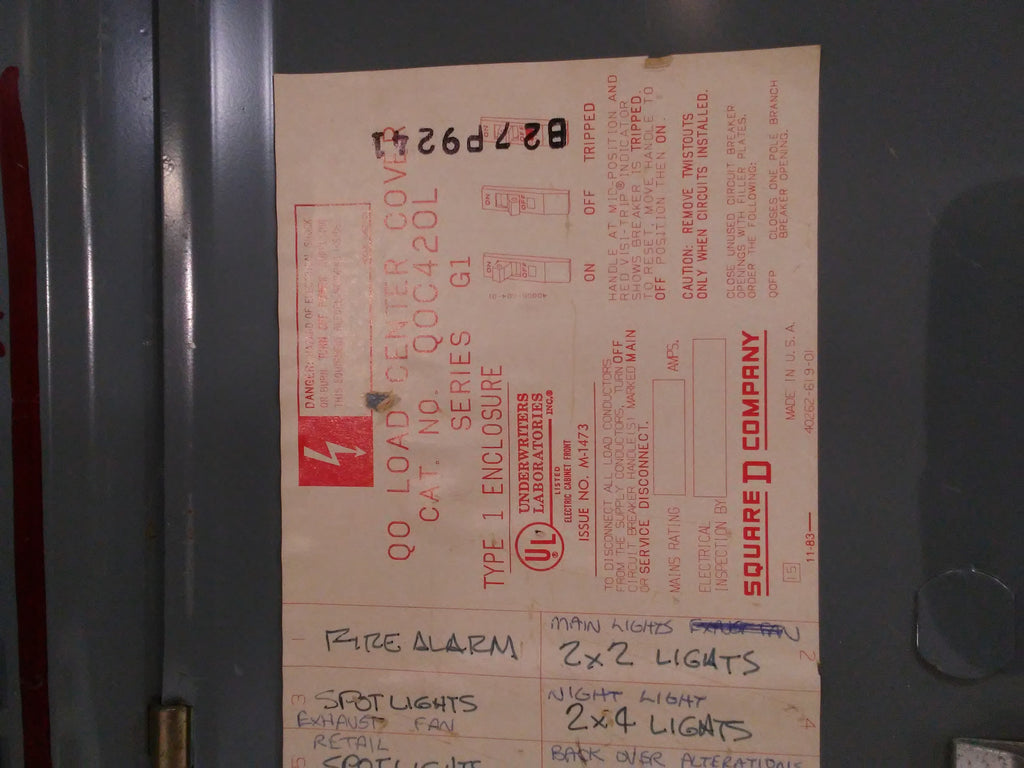 DANGER: HAZARD OF ELECTRICAL SHOCK
OR BURN. TURN OFF SUPPLY
THIS EQUIPMENT
QO LOAD CENTER COVER
CAT. NO. QOC42OL
SERIES G1
B27P9241
TYPE 1 ENCLOSURE
UL
UNDERWRITERS
LABORATORIES
INC.®
LISTED
ELECTRIC CABINET FRONT
ISSUE NO. M-1473
ON OFF
ON OFF
ON
40006-604-01
ON OFF TRIPPED
HANDLE AT MID-POSITION AND
RED VISI-TRIP® INDICATOR
SHOWS BREAKER IS TRIPPED.
TO RESET, MOVE HANDLE TO
OFF POSITION THEN ON.
TO DISCONNECT ALL LOAD CONDUCTORS
FROM THE SUPPLY CONDUCTORS, TURN OFF
CIRCUIT BREAKER HANDLE(S) MARKED MAIN
OR SERVICE DISCONNECT.
CAUTION: REMOVE TWISTOUTS
ONLY WHEN CIRCUITS INSTALLED.
MAINS RATING AMPS.
ELECTRICAL
INSPECTION BY
CLOSE UNUSED CIRCUIT BREAKER
OPENINGS WITH FILLER PLATES.
ORDER THE FOLLOWING:
QOFP CLOSES ONE POLE BRANCH
BREAKER OPENING.
SQUARE D COMPANY
MADE IN U.S.A.
15
11-83
40262-619-01
1
FIRE ALARM
MAIN LIGHTS EXHAUST FAN
2x2 LIGHTS
2
3
SPOTLIGHTS
EXHAUST FAN
NIGHT LIGHT
2x4 LIGHTS
4
5
RETAIL
SPOTLIGHTS
BACK OVER ALTERATIONS